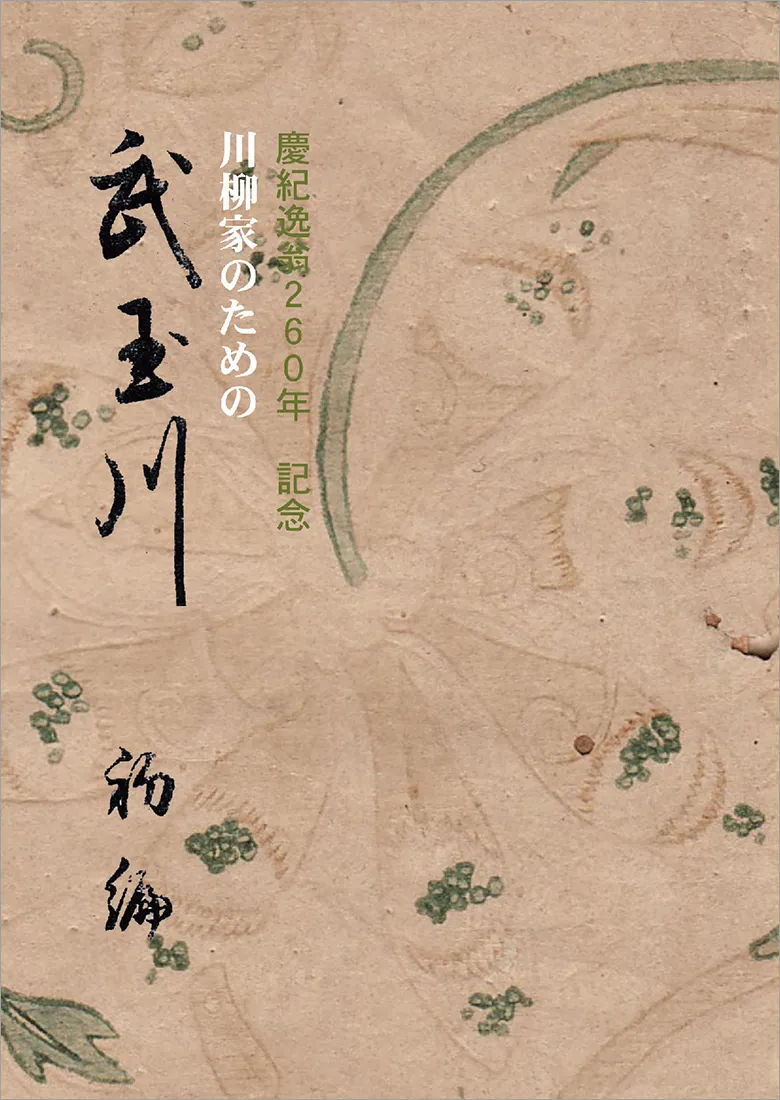 慶紀逸翁260年　記念
川柳家のための
武玉川
初編